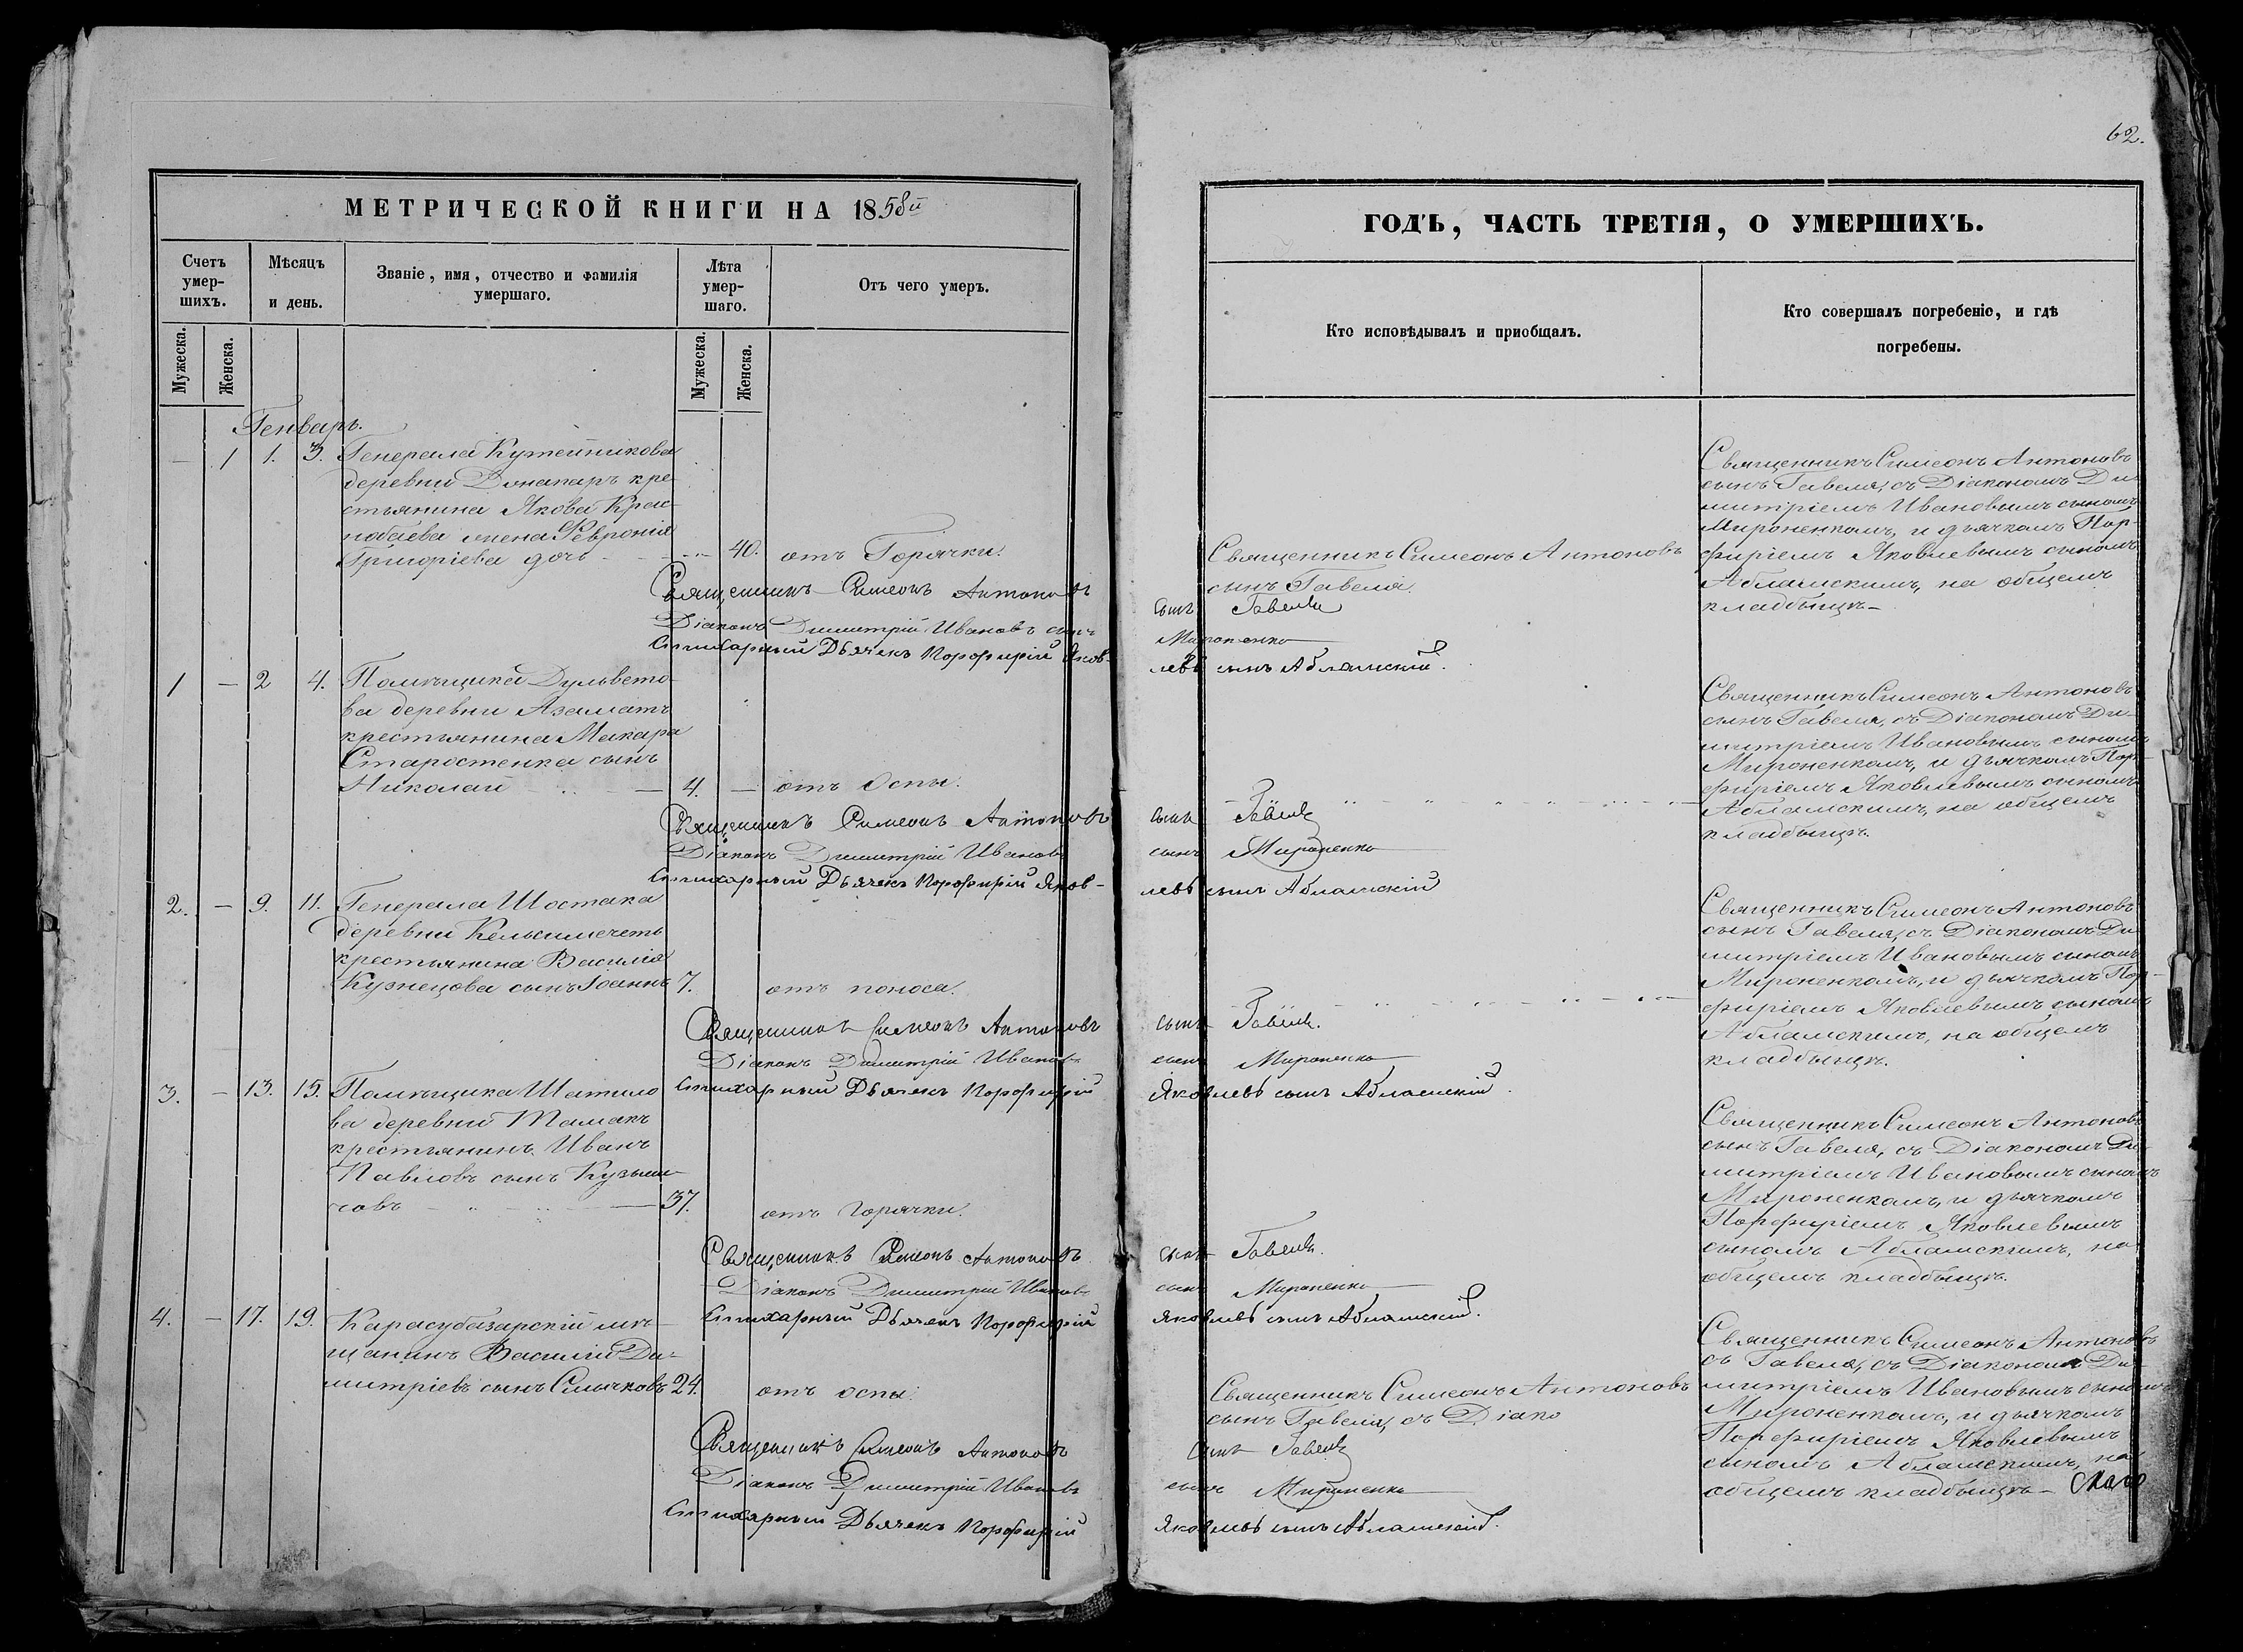 МЕТРИЧЕСКОЙ КНИГИ НА 1858й
Счетъ умер-шихъ.
Мѣсяцъ и день.
Званіе, имя, отчество и фамилія умершаго.
Лѣта умер-шаго.
Отъ чего умеръ.
Мужеска.
Женска.
Мужеска.
Женска.
Генварь.
— 1 1. 3. Генерала
деревни кре
стьянина Якова Крас
жена Февронія
Григоріева дочь 40. отъ Горячки.
Священникъ Симеонъ Антоновъ
Діаконъ Димитрій Ивановъ сынъ
Стихарный Дьячекъ Порфирій Яков-
1 — 2 4. Помѣщика
ва деревни Азаматъ
крестьянина Макара
Старостенка сынъ
Николай — 4. — отъ Оспы.
Священникъ Симеонъ Антоновъ
Діаконъ Димитрій Ивановъ
Стихарный Дьячекъ Порфирій Яков-
2. — 9. 11. Генерала Шостака
деревни
крестьянина Василія
Кузнецова сынъ Іоаннъ 7. отъ поноса.
Священникъ Симеонъ Антоновъ
Діаконъ Димитрій Ивановъ
3. — 13. 15. Помѣщика Шатило
Стихарный Дьячекъ Порфирій
ва деревни Тамакъ
крестьянинъ Иванъ
Павловъ сынъ Кузьми-
човъ — 37. отъ горячки.
Священникъ Симеонъ Антоновъ
Діаконъ Димитрій Ивановъ
4. — 17. 19. Карасубазарскій мѣ-
Стихарный Дьячекъ Порфирій
щанинъ Василій Ди-
митріевъ сынъ 24. отъ оспы.
Священникъ Симеонъ Антоновъ
Діаконъ Димитрій Ивановъ
Стихарный Дьячекъ Порфирій
62.
ГОДЪ, ЧАСТЬ ТРЕТІЯ, О УМЕРШИХЪ.
Кто исповѣдывалъ и пріобщалъ.
Кто совершалъ погребеніе, и гдѣ
погребены.
Священникъ Симеонъ Антоновъ
сынъ Гавеля.
сынъ Гавеля
Мироненко
левъ сынъ Абламскій.
сынъ Гавеля
сынъ Мироненко
левъ сынъ Абламскій
сынъ Гавеля.
сынъ Мироненко
Яковлевъ сынъ Абламскій.
сынъ Гавеля.
сынъ Мироненко
Яковлевъ сынъ Абламскій.
Священникъ Симеонъ Антоновъ
сынъ Гавеля, съ Діако
сынъ Гавеля
сынъ Мироненко
Яковлевъ сынъ Абламскій.
Священникъ Симеонъ Антоновъ
сынъ Гавеля, съ Діакономъ Ди
митріемъ Ивановымъ сыномъ
Мироненкомъ, и дьячкомъ Пор-
фиріемъ Яковлевымъ сыномъ
Абламскимъ, на общемъ
кладбищѣ—
Священникъ Симеонъ Антоновъ
сынъ Гавеля, съ Діакономъ Ди-
митріемъ Ивановымъ сыномъ
Мироненкомъ, и дьячкомъ Пор-
фиріемъ Яковлевымъ сыномъ
Абламскимъ, на общемъ
кладбищѣ.
Священникъ Симеонъ Антоновъ
сынъ Гавеля, съ Діакономъ Ди
митріемъ Ивановымъ сыномъ
Мироненкомъ, и дьячкомъ Пор-
фиріемъ Яковлевымъ сыномъ
Абламскимъ, на общемъ
кладбищѣ.
Священникъ Симеонъ Антоновъ
сынъ Гавеля, съ Діакономъ Ди-
митріемъ Ивановымъ сыномъ
Мироненкомъ, и дьячкомъ
Порфиріемъ Яковлевымъ
сыномъ Абламскимъ, на
общемъ кладбищѣ.
Священникъ Симеонъ Антоновъ
съ Гавеля, съ Діакономъ Ди-
митріемъ Ивановымъ сыномъ
Мироненкомъ, и дьячкомъ
Порфиріемъ Яковлевымъ
сыномъ Абламскимъ, на
общемъ кладбищѣ—